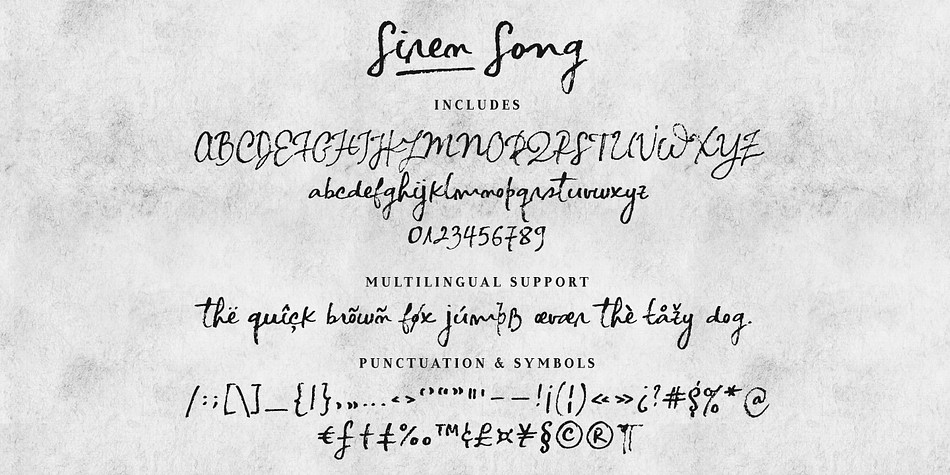 Siren Song
INCLUDES
ABCDEFGHIJKLMNOPQRSTUVWXYZ
abcdefghijklmnopqrstuvwxyz
0123456789
MULTILINGUAL SUPPORT
thë quîçk brõwñ føx júmpß œvær thè łåžy dog.
PUNCTUATION & SYMBOLS
/:;[\]_{|},„…‹›‘’“”"'–—!¡(¦)«»¿?#&%*@
€ƒ†‡‰™¢£¤¥§©®¶